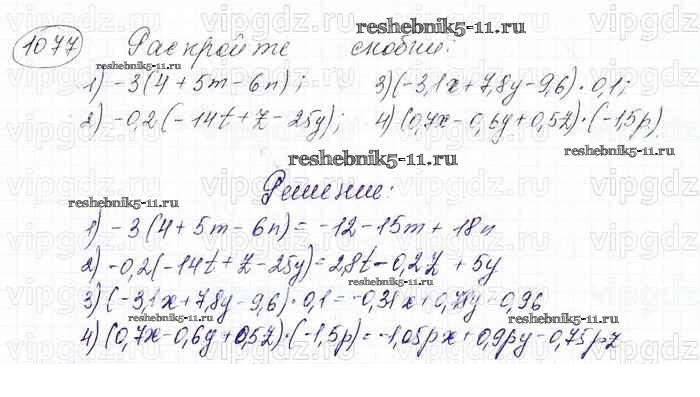 reshebnik5-11.ru
1077 Раскройте скобки:
reshebnik5-11.ru
1) -3(4 + 5m - 6n); 3) (-3,1x + 7,8y - 9,6) · 0,1;
2) -0,2(-14t + z - 25y); 4) (0,7x - 0,6y + 0,5z) · (-1,5p)
reshebnik5-11.ru
reshebnik5-11.ru
Решение:
reshebnik5-11.ru
1) -3(4 + 5m - 6n) = -12 - 15m + 18n
2) -0,2(-14t + z - 25y) = 2,8t - 0,2z + 5y
reshebnik5-11.ru
3) (-3,1x + 7,8y - 9,6) · 0,1 = -0,31x + 0,78y - 0,96
reshebnik5-11.ru
4) (0,7x - 0,6y + 0,5z) · (-1,5p) = -1,05px + 0,9py - 0,75pz